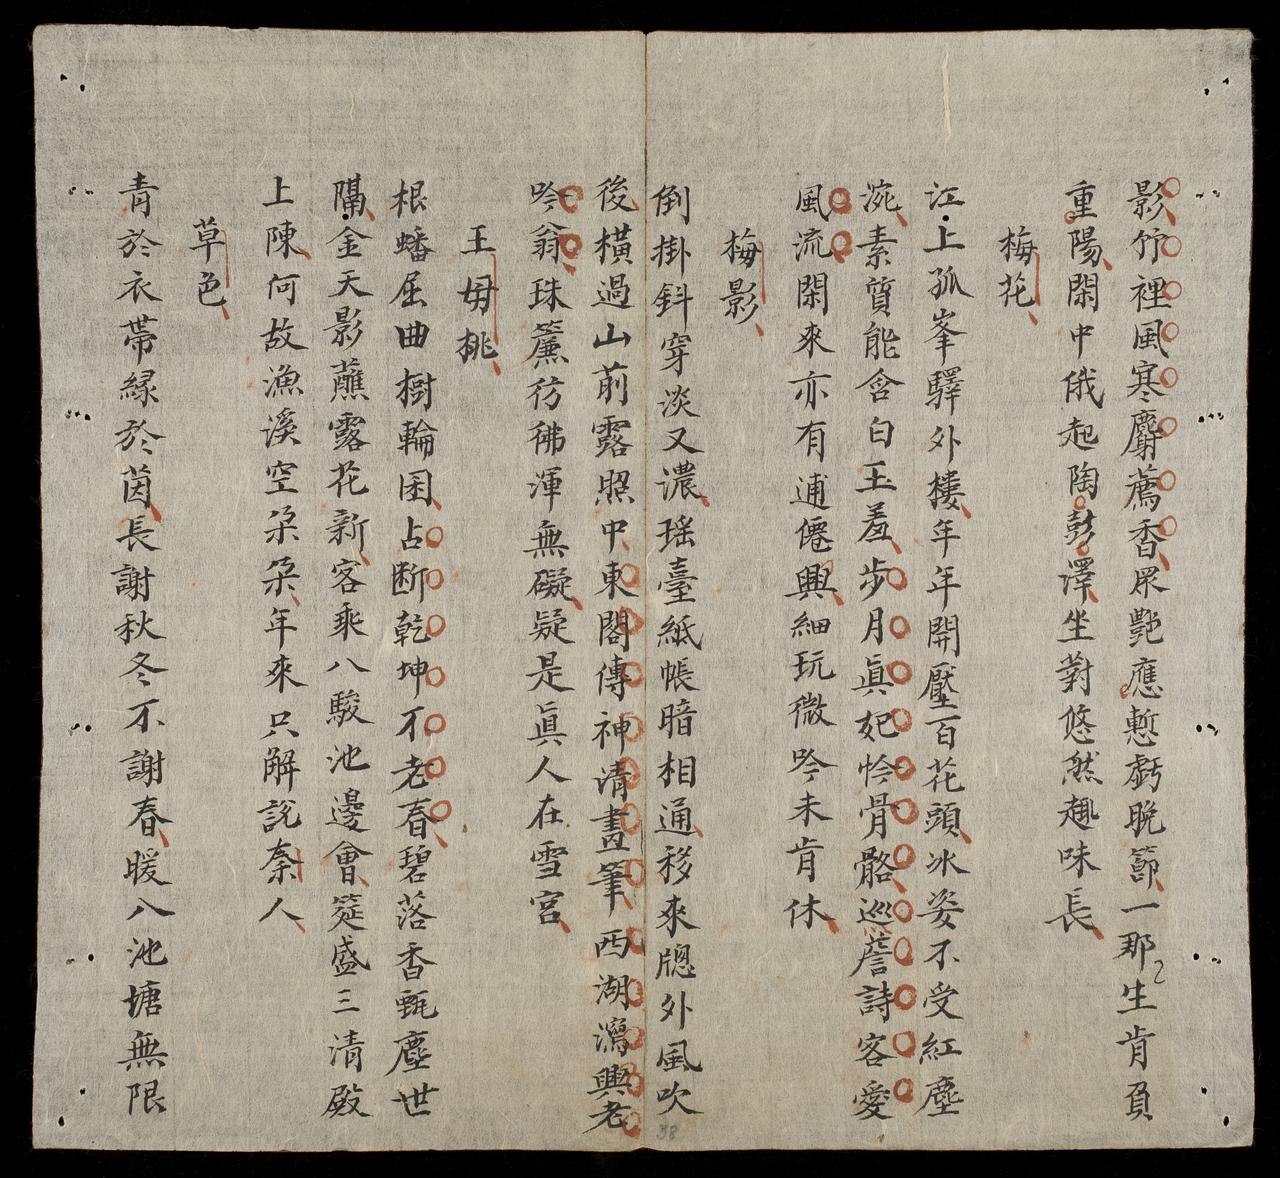 影竹裡風寒麝薦香眾艷應慙虧晚節一那生肯負
重陽閑中俄起陶彭澤坐對悠然趣味長
梅花
江上孤峯驛外樓年年開壓百花頭冰姿不受紅塵
涴素質能含白玉羞步月眞妃怜骨骼巡簷詩客愛
風流閑來亦有逋僊興細玩微吟未肯休
梅影
倒掛斜穿淡又濃瑶臺紙帳暗相通移來牕外風吹
後橫過山前露照中東閣傳神清畫筆西湖瀉興老
吟翁珠簾彷彿渾無礙疑是眞人在雪宮
王母桃
根蟠屈曲樹輪囷占断乾坤不老春碧落香甄塵世
隔金天影蘸露花新客乘八駿池邊會筵盛三清殿
上陳何故漁溪空朶朶年來只解説秦人
草色
青於衣帶緑於茵長謝秋冬不謝春暖八池塘無限
38